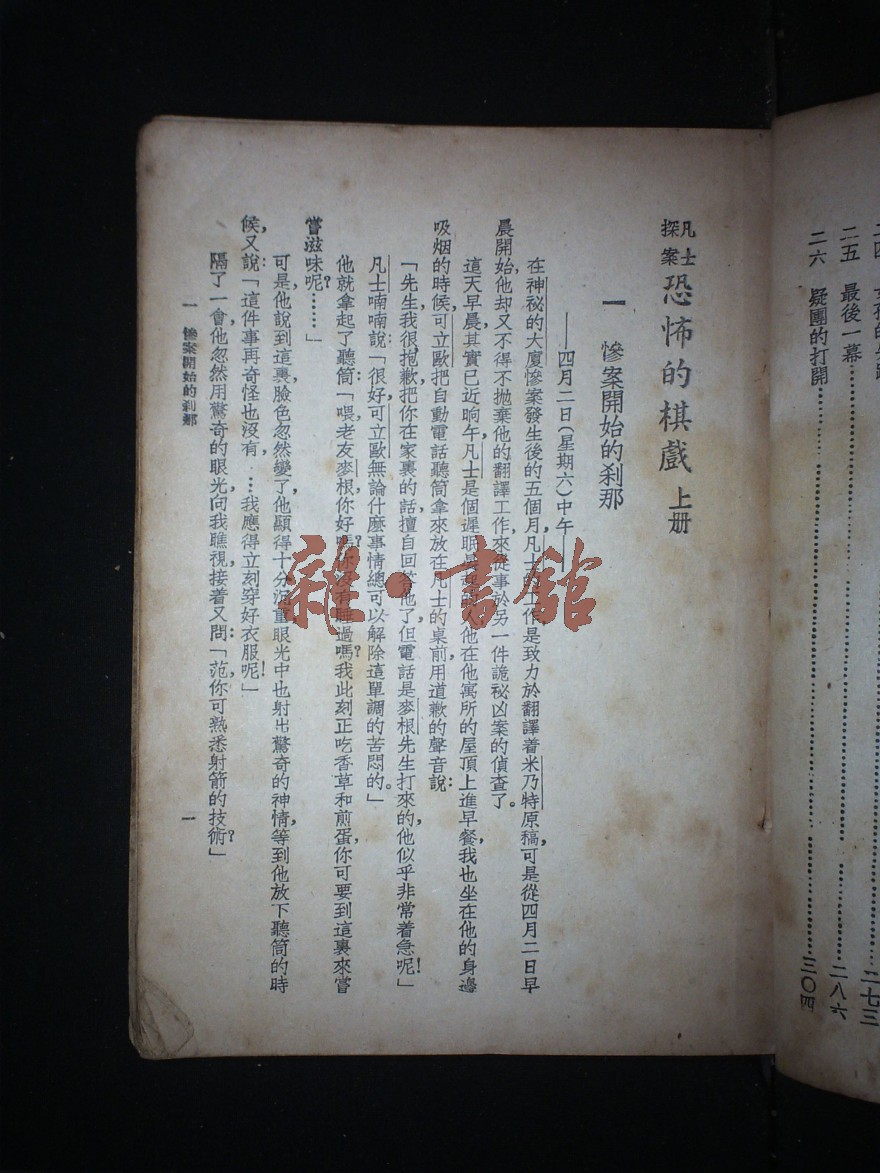 二五　最後一幕……二八六
二六　疑團的打開……三〇四
凡士探案 恐怖的棋戲 上册
一　慘案開始的刹那
——四月二日（星期六）中午——
在神祕的大廈慘案發生後的五個月，凡士的工作是致力於翻譯着米乃特原稿，可是從四月二日早
晨開始，他却又不得不抛棄他的翻譯工作，來從事於另一件詭祕凶案的偵查了。
這天早晨，其實已近晌午，凡士是個遲眠他在他寓所的屋頂上進早餐，我也坐在他的身邊
吸烟的時候，可立歐把自動電話聽筒拿來放在凡士的桌前，用道歉的聲音說：
「先生，我很抱歉，把你在家裏的話擅自回答他了，但電話是麥根先生打來的，他似乎非常着急呢！」
凡士喃喃說：「很好，可立歐，無論什麼事情總可以解除這單調的苦悶的。」
他就拿起了聽筒：「喂，老友麥根，你好嗎？你沒有睡過嗎？我此刻正吃香草和煎蛋，你可要到這裏來嘗
嘗滋味呢？……」
可是他說到這裏，臉色忽然變了，他顯得十分沉重，眼光中也射出驚奇的神情，等到他放下聽筒的時
候，又說：「這件事再奇怪也沒有，…我應得立刻穿好衣服呢！」
隔了一會，他忽然用驚奇的眼光向我瞧視，接着又問：「范，你可熟悉射箭的技術？」
一　慘案開始的刹那　一
雜·書館